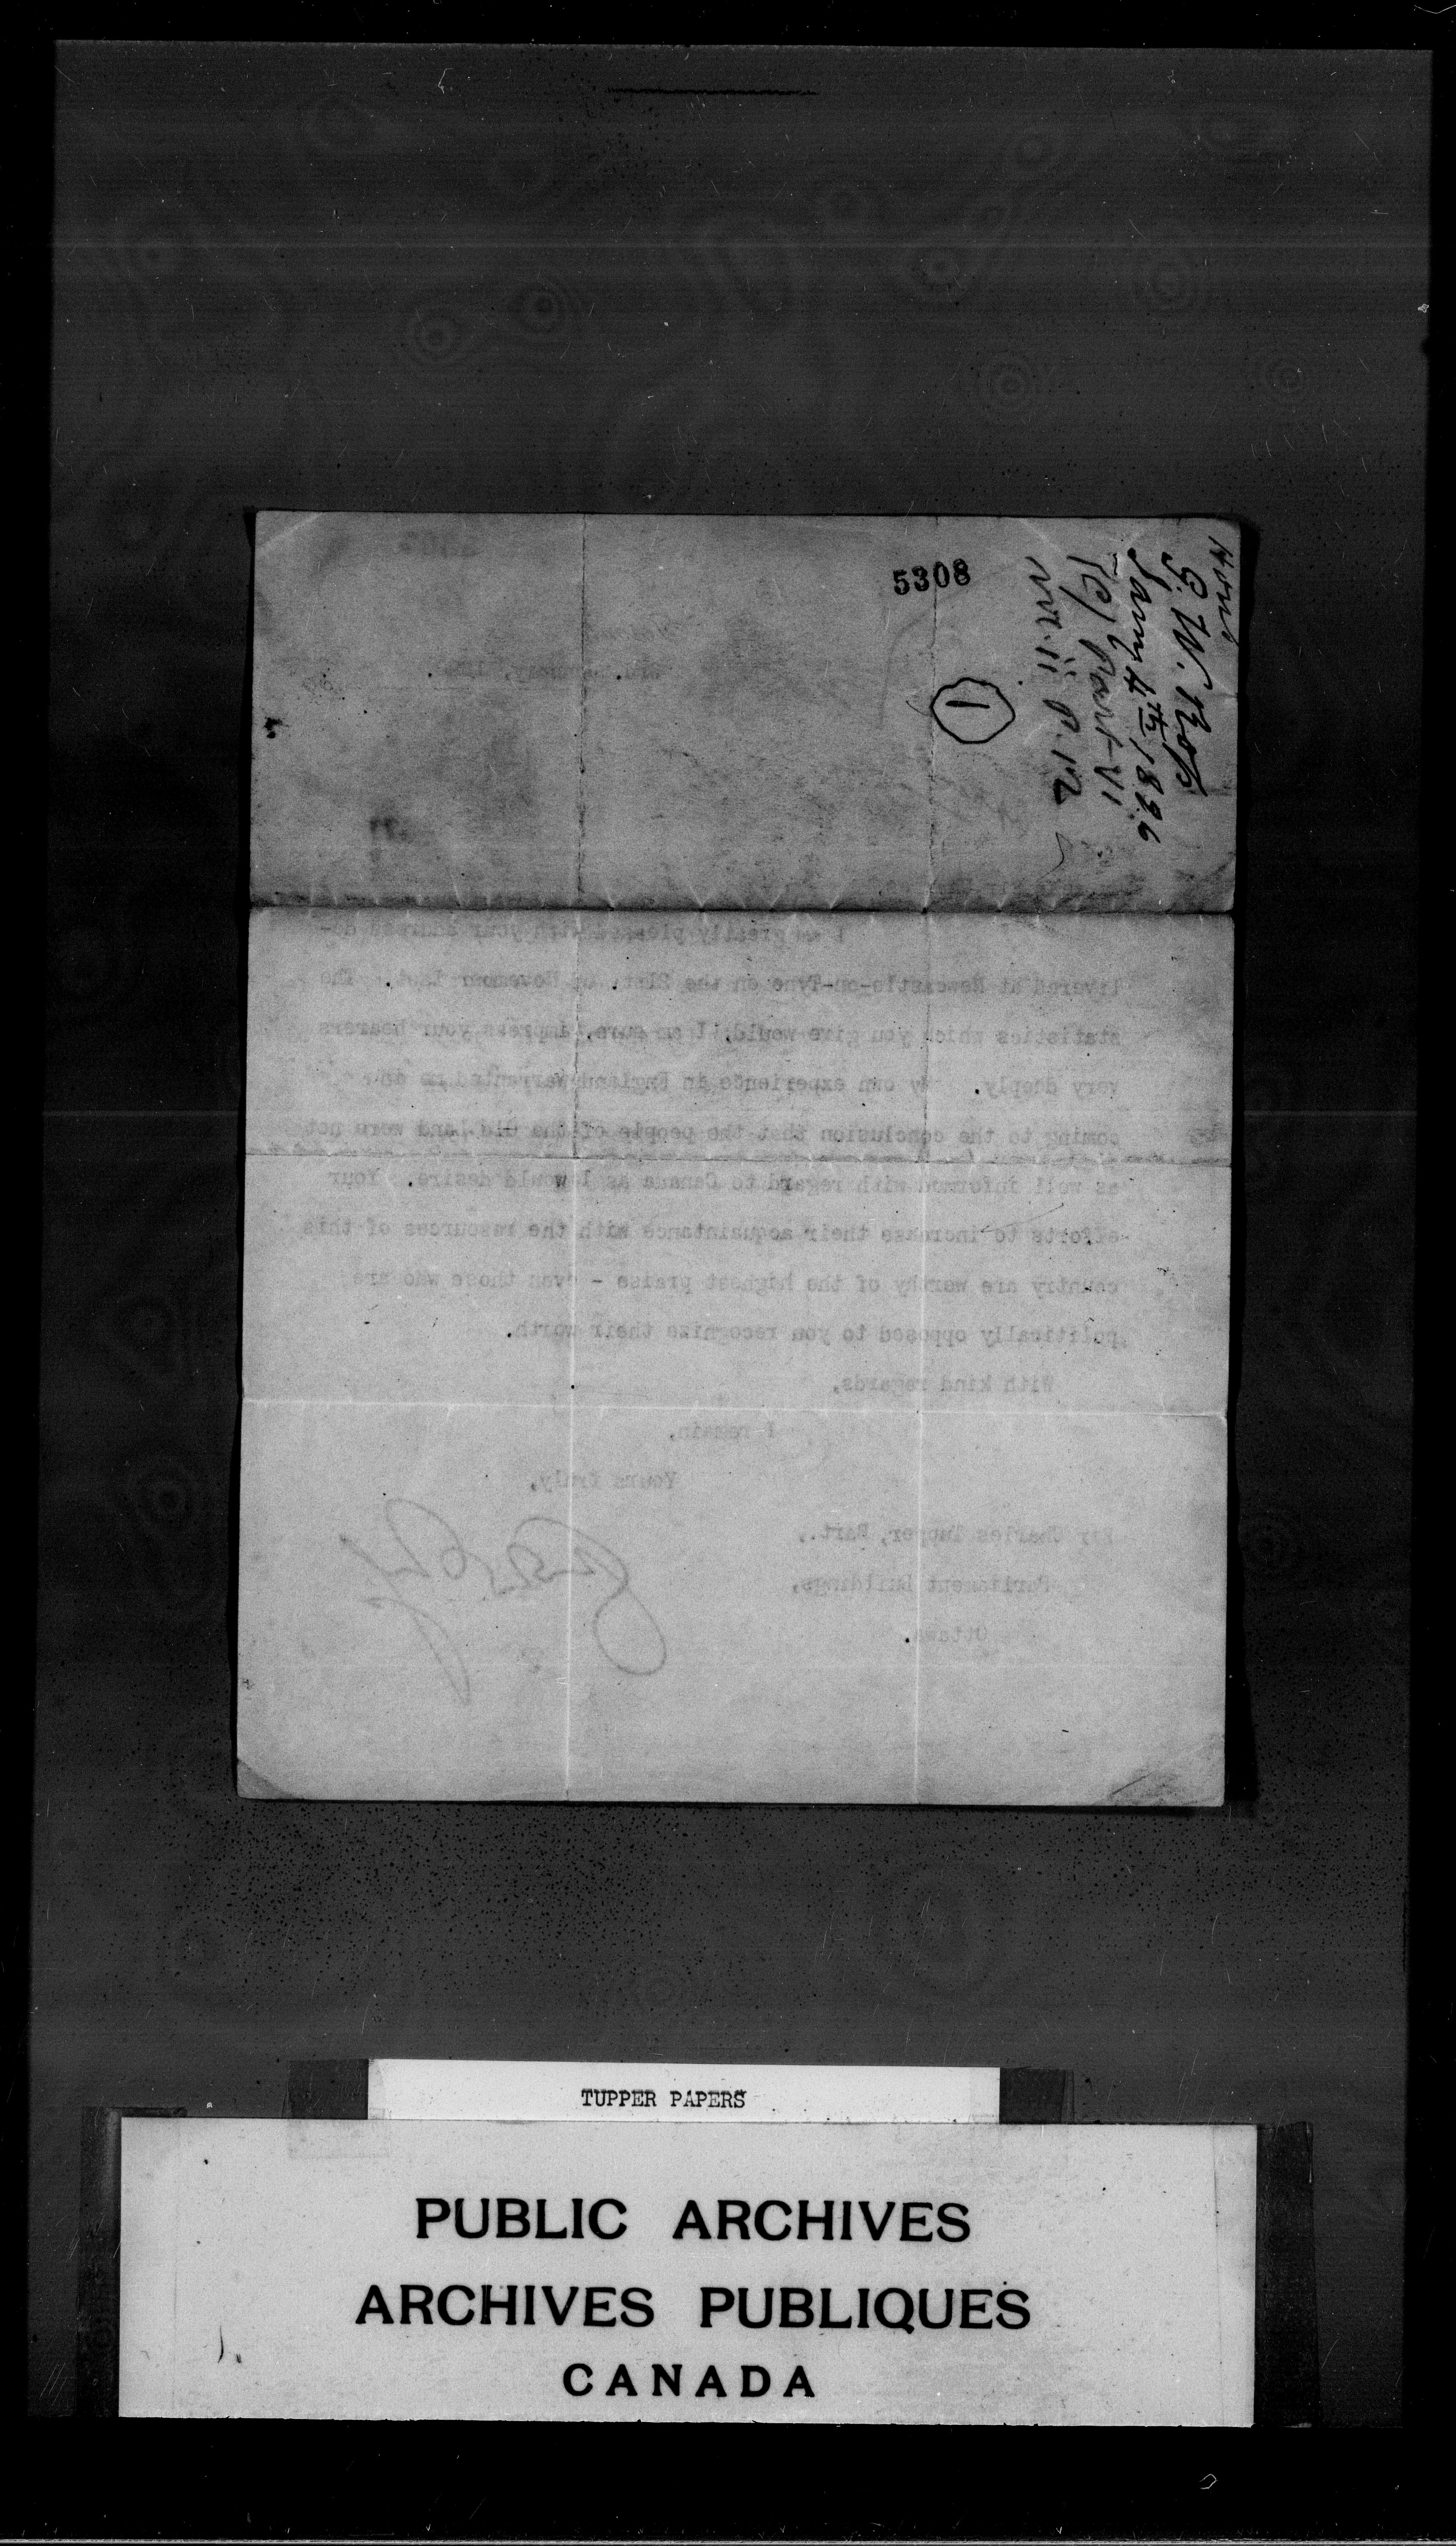 5308
Honb
G. W. Ross
Jany 4th 1896
(C) Part VI
No. 11 P. 12
1
I am greatly pleased with your address de-
livered at Newcastle-on-Tyne on the 21st. of November last. The
statistics which you give would, I am sure, impress your hearers
very deeply. My own experience in England warranted me in
coming to the conclusion that the people of the Old Land were not
as well informed with regard to Canada as I would desire. Your
efforts to increase their acquaintance with the resources of this
country are worthy of the highest praise - even those who are
politically opposed to you recognize their worth.
With kind regards,
I remain,
Yours truly,
Sir Charles Tupper, Bart.,
Parliament Buildings,
Ottawa.
TUPPER PAPERS
PUBLIC ARCHIVES
ARCHIVES PUBLIQUES
CANADA